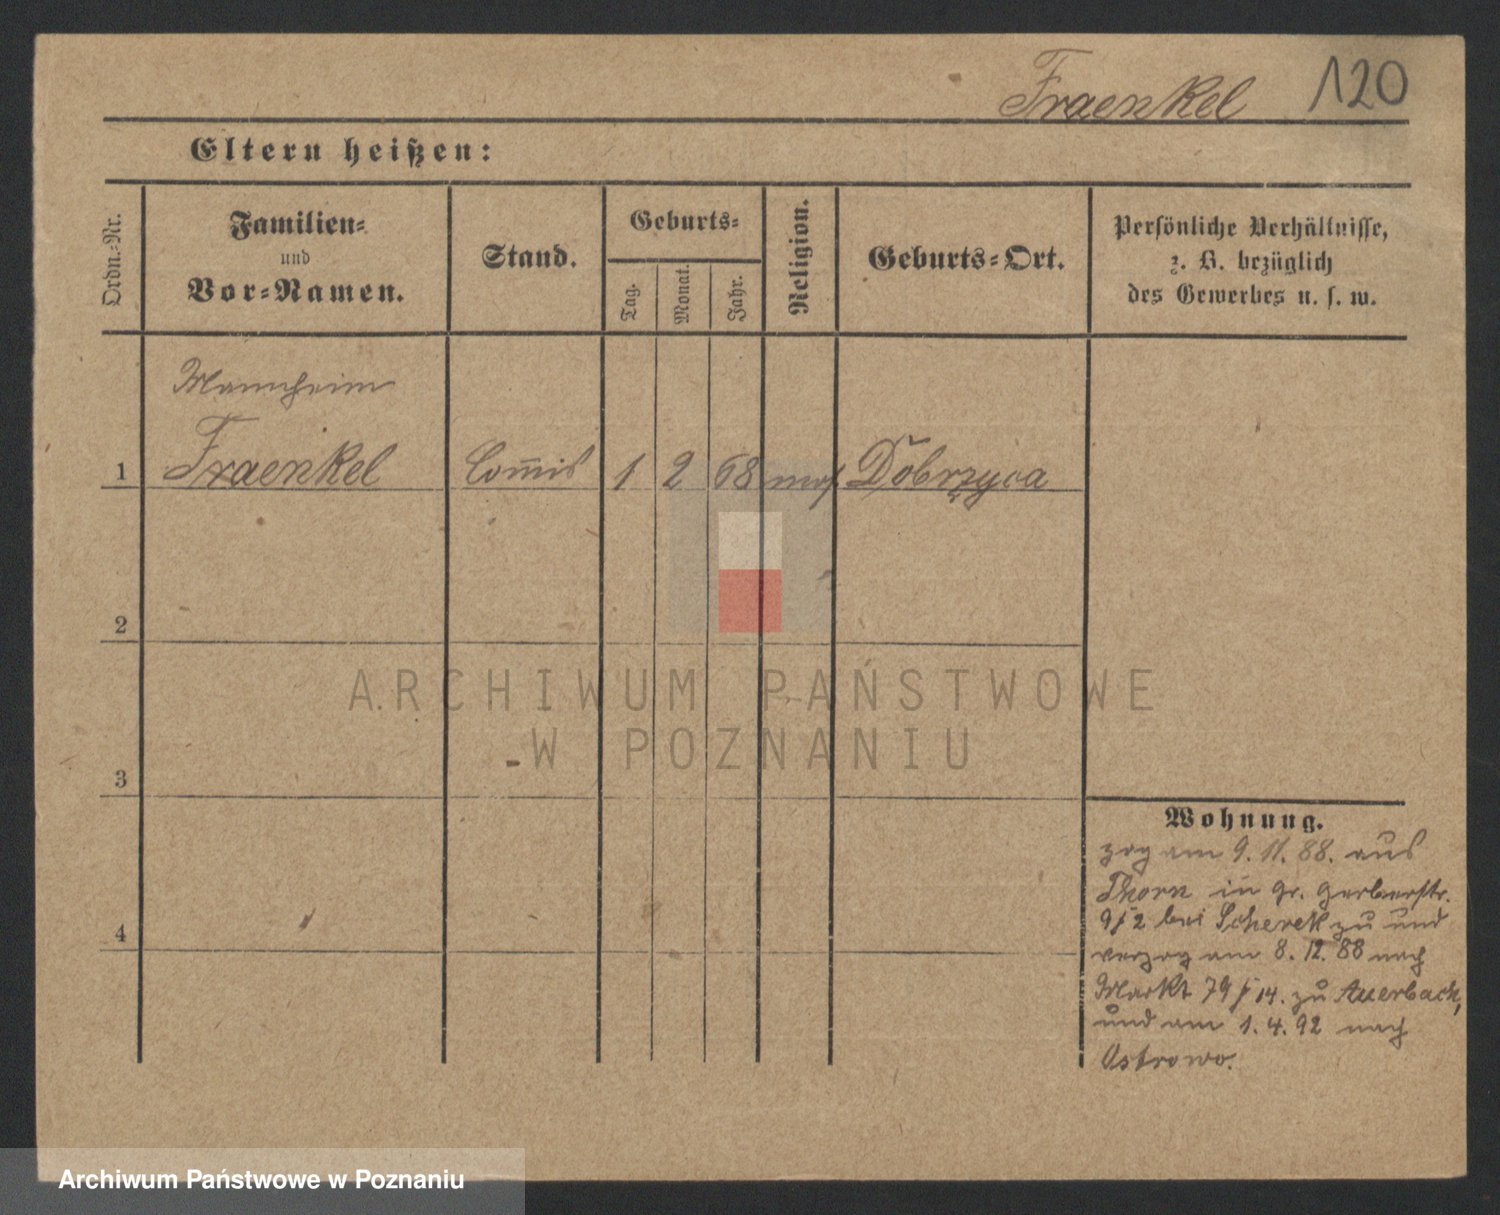 Fraenkel 120
Eltern heißen:
Ordn.-Nr.
Familien-
und
Vor-Namen.
Stand.
Geburts-
Tag.
Monat.
Jahr.
Religion.
Geburts-Ort.
Persönliche Verhältnisse,
z. B. bezüglich
des Gewerbes u. s. w.
Mannheim
1 Fraenkel Com̄is 1 2 68 mos. Dobrzyca
2
3
4
Wohnung.
zog am 9. 11. 88. aus
Thorn in gr. Gerberstr.
9 I 2 bei Scherek zu und
verzog am 8. 12. 88 nach
Markt 79 I 14. zu Auerbach,
und am 1. 4. 92 nach
Ostrowo.
ARCHIWUM PAŃSTWOWE
W POZNANIU
Archiwum Państwowe w Poznaniu